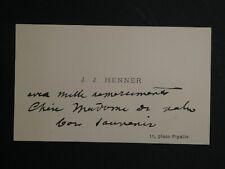 J. J. HENNER
avec mille remerciements
Chère Madame de
bon souvenir
11, place Pigalle